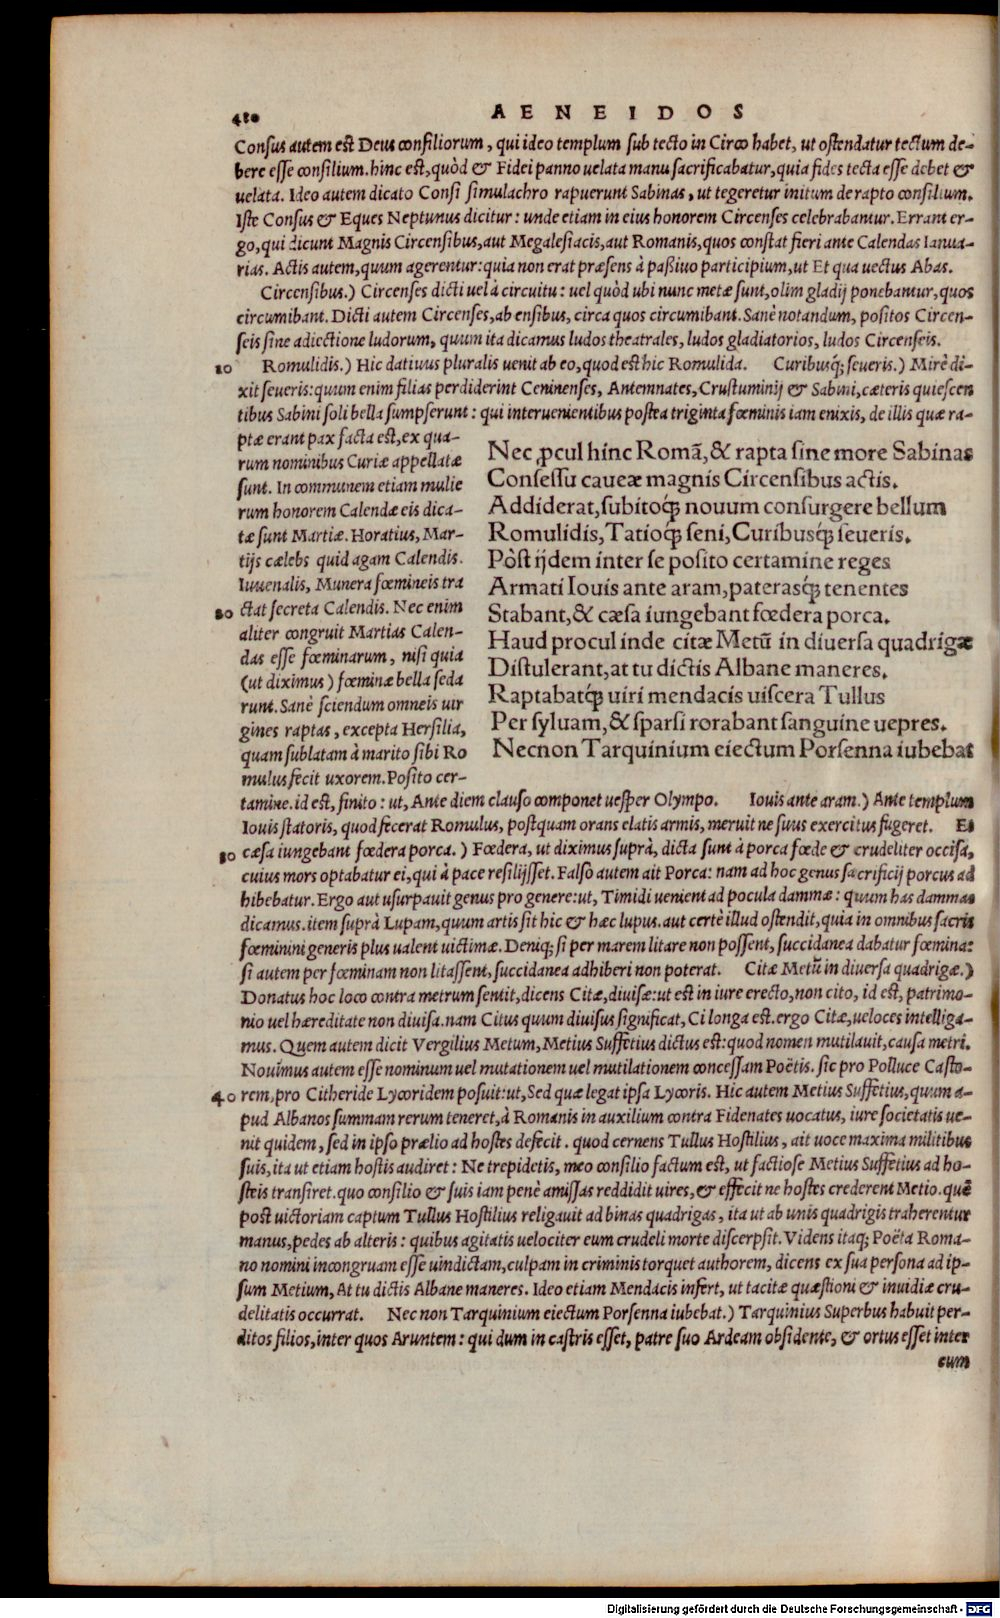 480 AENEIDOS
Consus autem est Deus consiliorum, qui ideo templum sub tecto in Circo habet, ut ostendatur tectum de-
bere esse consilium. hinc est, quòd & Fidei panno uelata manu sacrificabatur, quia fides tecta esse debet &
uelata. Ideo autem dicato Consi simulachro rapuerunt Sabinas, ut tegeretur initum de rapto consilium.
Iste Consus & Eques Neptunus dicitur: unde etiam in eius honorem Circenses celebrabantur. Errant er-
go, qui dicunt Magnis Circensibus, aut Megalesiacis, aut Romanis, quos constat fieri ante Calendas Ianua-
rias. Actis autem, quum agerentur: quia non erat præsens à paßiuo participium, ut Et qua uectus Abas.
Circensibus.) Circenses dicti uel à circuitu: uel quòd ubi nunc metæ sunt, olim gladij ponebantur, quos
circumibant. Dicti autem Circenses, ab ensibus, circa quos circumibant. Sanè notandum, positos Circen-
seis sine adiectione ludorum, quum ita dicamus ludos theatrales, ludos gladiatorios, ludos Circenseis.
10 Romulidis.) Hic datiuus pluralis uenit ab eo, quod est hic Romulida. Curibusq́; seueris.) Mirè di-
xit seueris: quum enim filias perdiderint Ceninenses, Antemnates, Crustuminij & Sabini, cæteris quiescen
tibus Sabini soli bella sumpserunt: qui interuenientibus postea triginta fœminis iam enixis, de illis quæ ra-
ptæ erant pax facta est, ex qua-
rum nominibus Curiæ appellatæ
sunt. In communem etiam mulie
rum honorem Calendæ eis dica-
tæ sunt Martiæ. Horatius, Mar-
tijs cælebs quid agam Calendis.
Iuuenalis, Munera fœmineis tra
20 ctat secreta Calendis. Nec enim
aliter congruit Martias Calen-
das esse fœminarum, nisi quia
(ut diximus) fœminæ bella seda
runt. Sanè sciendum omneis uir
gines raptas, excepta Hersilia,
quam sublatam à marito sibi Ro
mulus fecit uxorem. Posito cer-
Nec ꝓcul hinc Romã, & rapta sine more Sabinas
Consessu caueæ magnis Circensibus actis.
Addiderat, subitoq́; nouum consurgere bellum
Romulidis, Tatioq́; seni, Curibusq́; seueris.
Pòst ijdem inter se posito certamine reges
Armati Iouis ante aram, paterasq́; tenentes
Stabant, & cæsa iungebant fœdera porca.
Haud procul inde citæ Metũ in diuersa quadrigæ
Distulerant, at tu dictis Albane maneres.
Raptabatq́; uiri mendacis uiscera Tullus
Per syluam, & sparsi rorabant sanguine uepres.
Necnon Tarquinium eiectum Porsenna iubebat
tamine. id est, finito: ut, Ante diem clauso componet uesper Olympo. Iouis ante aram.) Ante templum
Iouis statoris, quod fecerat Romulus, postquam orans elatis armis, meruit ne suus exercitus fugeret. Et
30 cæsa iungebant fœdera porca.) Fœdera, ut diximus suprà, dicta sunt à porca fœde & crudeliter occisa,
cuius mors optabatur ei, qui à pace resilijsset. Falso autem ait Porca: nam ad hoc genus sacrificij porcus ad
hibebatur. Ergo aut usurpauit genus pro genere: ut, Timidi uenient ad pocula dammæ: quum has dammas
dicamus. item suprà Lupam, quum artis sit hic & hæc lupus. aut certè illud ostendit, quia in omnibus sacris
fœminini generis plus ualent uictimæ. Deniq; si per marem litare non possent, succidanea dabatur fœmina:
si autem per fœminam non litassent, succidanea adhiberi non poterat. Citæ Metũ in diuersa quadrigæ.)
Donatus hoc loco contra metrum sentit, dicens Citæ, diuisæ: ut est in iure erecto, non cito, id est, patrimo-
nio uel hæreditate non diuisa. nam Citus quum diuisus significat, Ci longa est. ergo Citæ, ueloces intelliga-
mus. Quem autem dicit Vergilius Metum, Metius Suffetius dictus est: quod nomen mutilauit, causa metri.
Nouimus autem esse nominum uel mutationem uel mutilationem concessam Poëtis. sic pro Polluce Casto-
40 rem, pro Citheride Lycoridem posuit: ut, Sed quæ legat ipsa Lycoris. Hic autem Metius Suffetius, quum a-
pud Albanos summam rerum teneret, à Romanis in auxilium contra Fidenates uocatus, iure societatis ue-
nit quidem, sed in ipso prælio ad hostes defecit. quod cernens Tullus Hostilius, ait uoce maxima militibus
suis, ita ut etiam hostis audiret: Ne trepidetis, meo consilio factum est, ut factiose Metius Suffetius ad ho-
steis transiret. quo consilio & suis iam penè amissas reddidit uires, & effecit ne hostes crederent Metio. quẽ
post uictoriam captum Tullus Hostilius religauit ad binas quadrigas, ita ut ab unis quadrigis traherentur
manus, pedes ab alteris: quibus agitatis uelociter eum crudeli morte discerpsit. Videns itaq; Poëta Roma-
no nomini incongruam esse uindictam, culpam in criminis torquet authorem, dicens ex sua persona ad ip-
sum Metium, At tu dictis Albane maneres. Ideo etiam Mendacis infert, ut tacitæ quæstioni & inuidiæ cru-
delitatis occurrat. Nec non Tarquinium eiectum Porsenna iubebat.) Tarquinius Superbus habuit per-
ditos filios, inter quos Aruntem: qui dum in castris esset, patre suo Ardeam obsidente, & ortus esset inter
eum
Digitalisierung gefördert durch die Deutsche Forschungsgemeinschaft - DFG